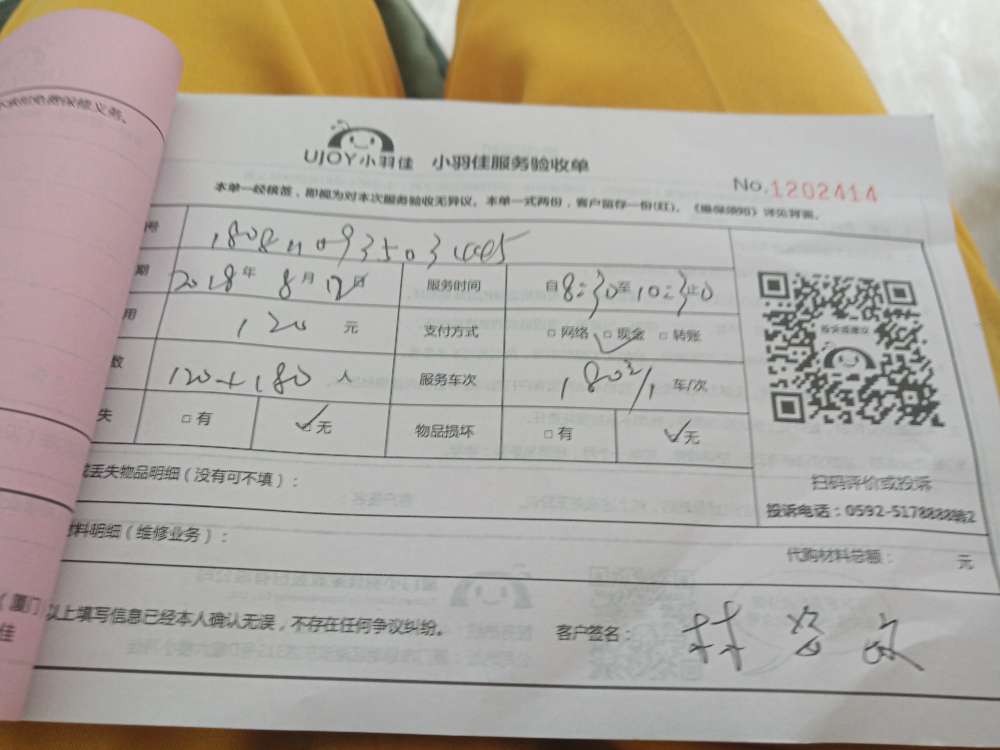 承担免费保修义务。
UJOY小羽佳 小羽佳服务验收单
No.1202414
本单一经核签，即视为对本次服务验收无异议。本单一式两份，客户留存一份(红)。《维保须知》详见背面。
号
期 2018年 8月 12日 服务时间 自8:30至10:30止
用 120 元 支付方式 □网络 □现金 □转账
数 120+180 人 服务车次 车/次
失 □有 □无 物品损坏 □有 □无
投诉或建议
扫码评价或投诉
投诉电话：0592-5178888转2
或丢失物品明细（没有可不填）：
材料明细（维修业务）：
代购材料总额： 元
（厦门）
佳
以上填写信息已经本人确认无误，不存在任何争议纠纷。
客户签名：